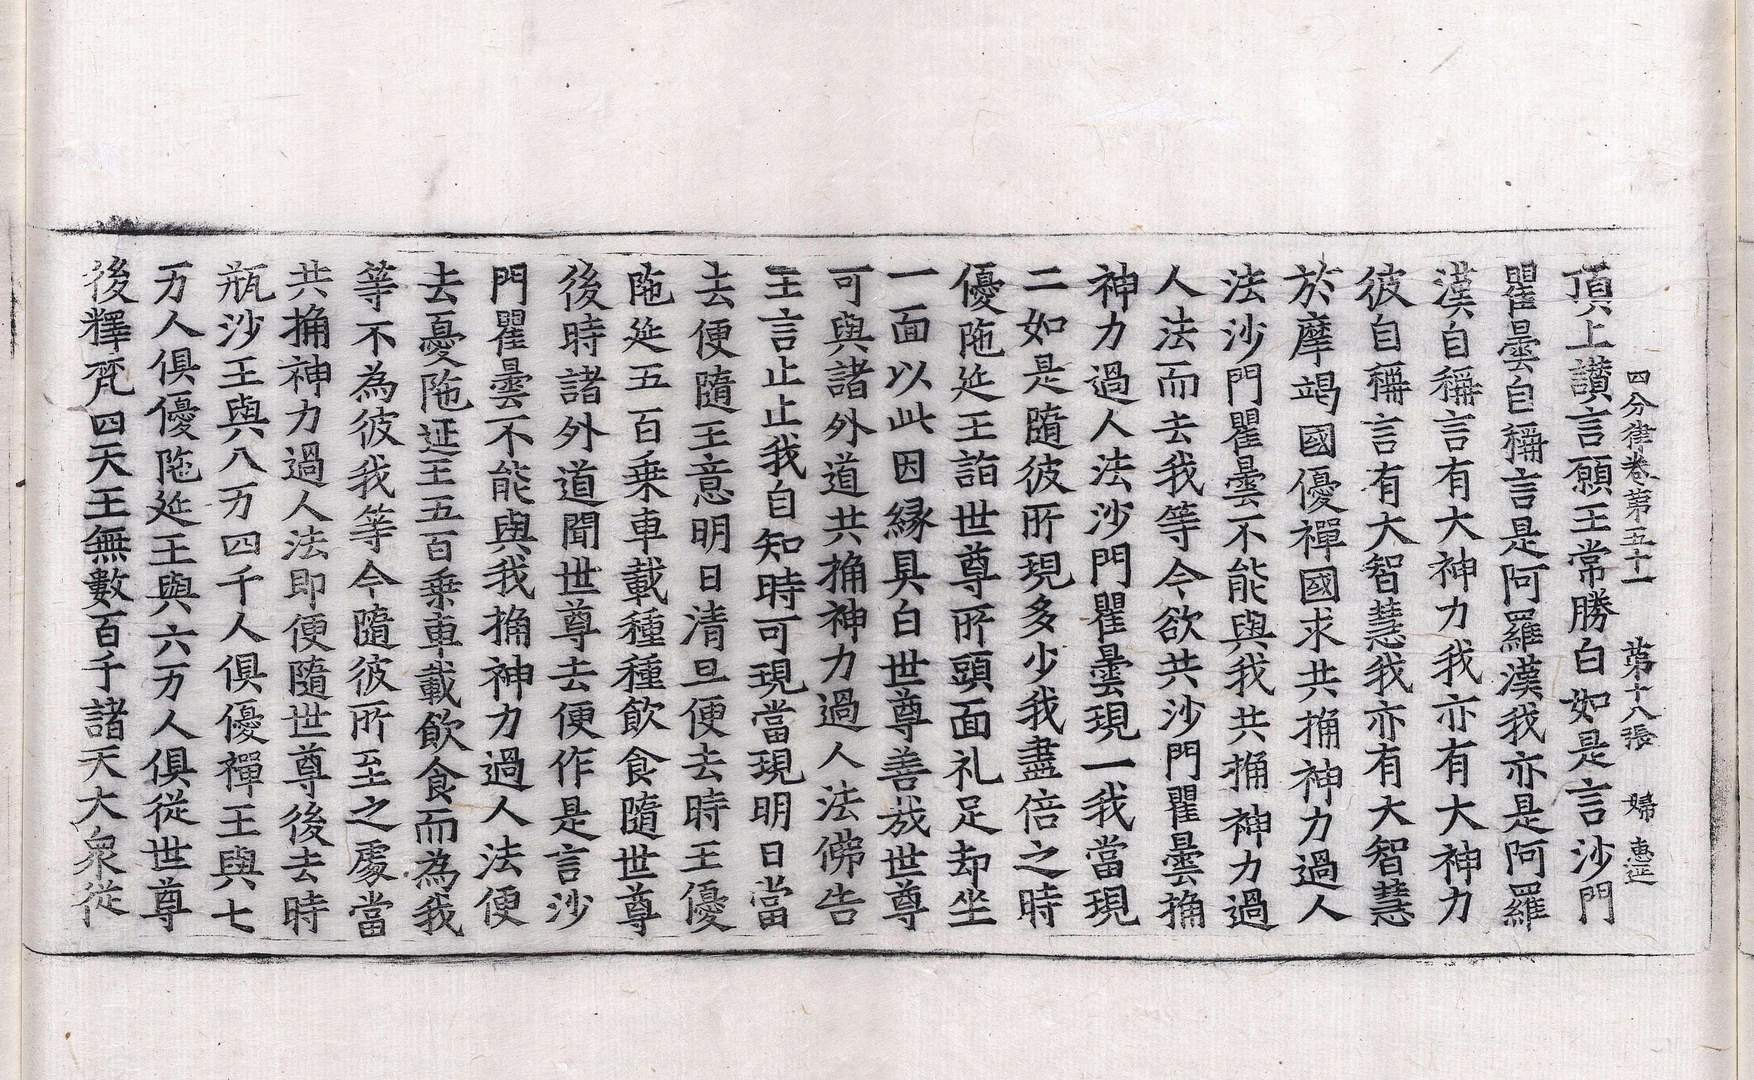 四分律卷第五十一 第十八張 婦 惠证
頂上讃言願王常勝白如是言沙門
瞿曇自稱言是阿羅漢我亦是阿羅
漢自稱言有大神力我亦有大神力
彼自稱言有大智慧我亦有大智慧
於摩竭國優禪國求共捔神力過人
法沙門瞿曇不能與我共捔神力過
人法而去我等今欲共沙門瞿曇捔
神力過人法沙門瞿曇現一我當現
二如是隨彼所現多少我盡倍之時
優陁延王詣世尊所頭面礼足却坐
一面以此因縁具白世尊善哉世尊
可與諸外道共捔神力過人法佛告
王言止止我自知時可現當現明日當
去便隨王意明日清旦便去時王優
陁延五百乗車載種種飲食隨世尊
後時諸外道聞世尊去便作是言沙
門瞿曇不能與我捔神力過人法便
去憂陁延王五百乗車載飲食而為我
等不為彼我等今隨彼所至之處當
共捔神力過人法即便隨世尊後去時
瓶沙王與八万四千人俱優禪王與七
万人俱優陁延王與六万人俱從世尊
後釋梵四天王無數百千諸天大衆從